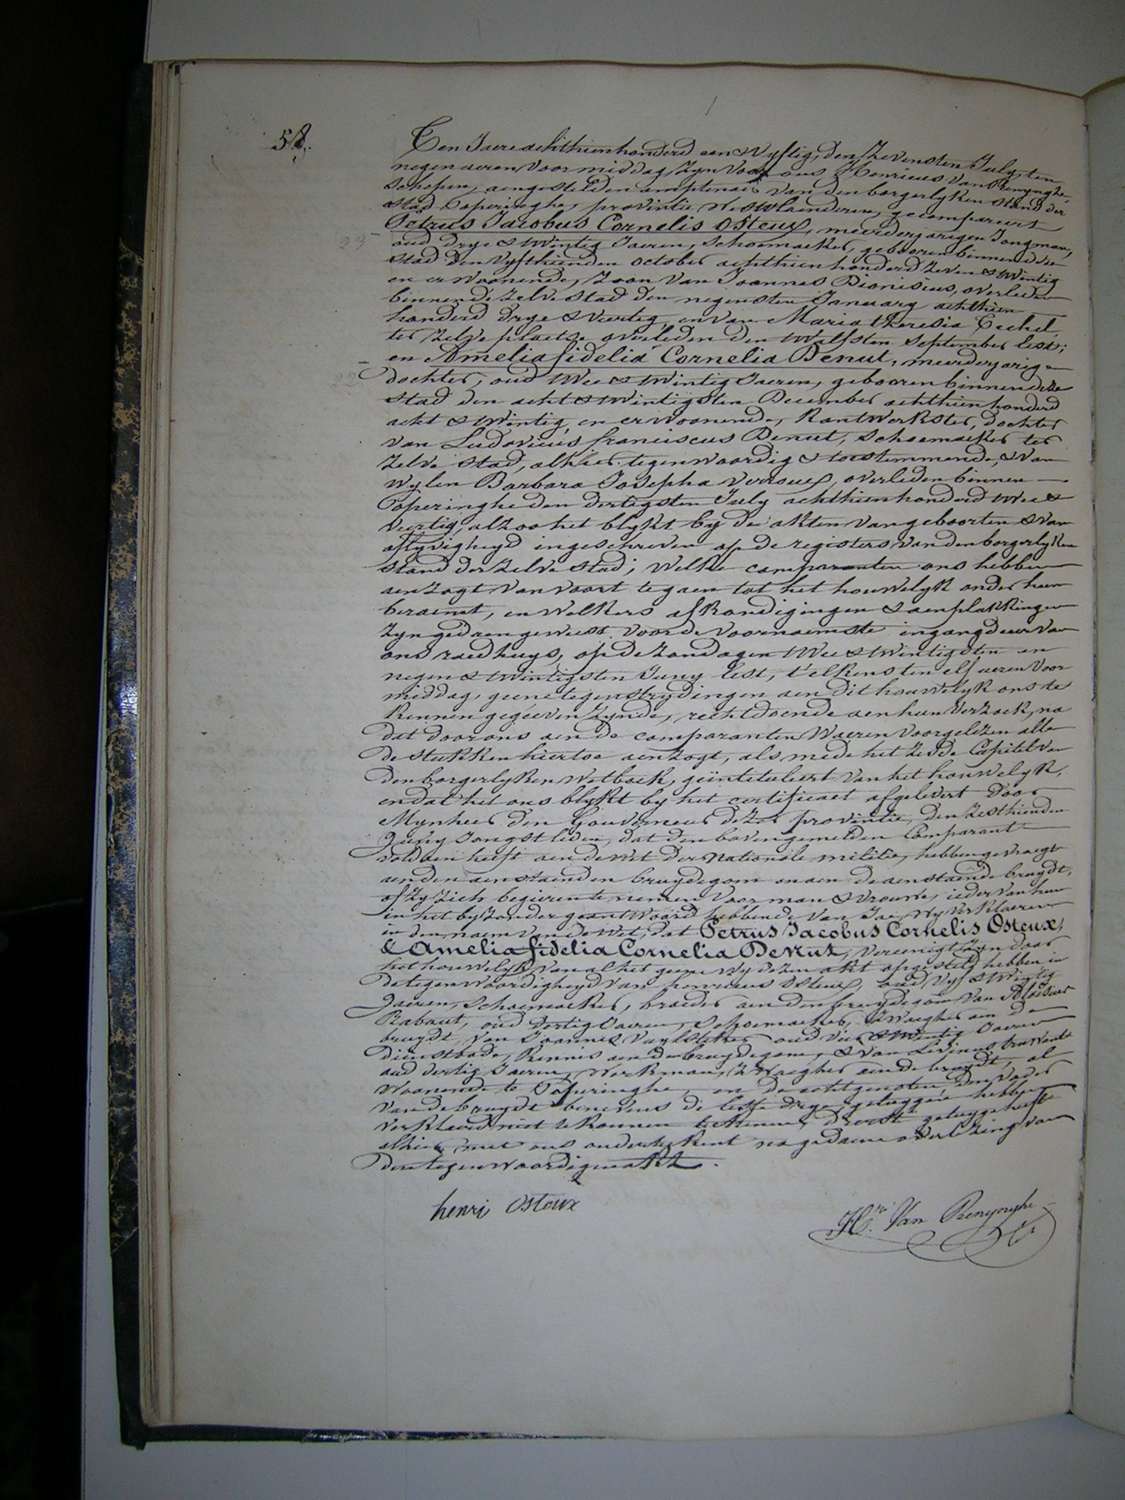 58.
Ten Jaere achthien honderd een & vyftig, den zevensten July, ten
negen ueren voormiddag, zyn voor ons Henricus Van Renynghe
schepen, aengestelden amptenaer van den borgerlyken stand der
stad Poperinghe, provintie Westvlaenderen, gecompareert
Petrus Jacobus Cornelis Osteux, meerderjaerigen Jongman,
23
oud drye & twintig Jaeren, schoenmaeker, gebooren binnen deze
stad den vyfthienden october achthien honderd zeven & twintig
en er woonende, zoon van Joannes Dionisius, overleden
binnen de zelve stad den negensten January achthien
honderd drye & veertig, en van Maria theresia
ter zelve plaetse overleden den twalfsten September lest;
en Amelia fidelia Cornelia Denut, meerderjarige
22
dochter, oud twee & twintig Jaeren, gebooren binnen deze
stad den acht & twintigsten December achthien honderd
acht & twintig, en er woonende, kantwerkster, dochter
van Ludovicus franciscus Denut, schoenmaeker ter
zelve stad, alhier tegenwoordig & toestemmende, & van
wylen Barbara Josepha overleden binnen
Poperinghe den dertigsten July achthien honderd twee &
veertig, alzoo het blykt by de akten van geboorten & van
aflyvigheyd ingeschreven op de registers van den borgerlyken
stand der zelve stad; welke comparanten ons hebben
aenzogt van voort te gaen tot het houwelyk onder hun
beraemt, en welkers afkondigingen & aenplakkingen
zyn gedaen geweest voor de voornaemste ingangdeur van
ons raedhuys, op de zondagen twee & twintigsten en
negen & twintigsten Juny lest, t'elkens ten elf ueren voor
middag, geene tegenstrydingen aen dit houwelyk ons te
kennen gegeeven zynde, rechtdoende aen hun verzoek, na
dat door ons aen de comparanten waeren voorgelezen alle
de stukken hiertoe aenzogt, als mede het zesde Capitel van
den borgerlyken Wetboek, geintituleert van het houwelyk,
en dat het ons blykt by het certificaet afgelevert door
Mynheer den Gouverneur dezer provintie, den zesthienden
Juny Jongstleden, dat den bovengemelden Comparant
voldaen heeft aen de wet der Nationale militie, hebben gevraegt
aen den aenstaenden bruydegom en aen de aenstaende bruydt,
of zy zich begeerente nemen voor man & vrouwe, ieder van hun
in het byzonder geantwoord hebbende, van Ja, wy verklaeren
in den naem van de wet, dat Petrus Jacobus Cornelis Osteux,
& Amelia fidelia Cornelia Denut, vereenigt zyn door
het houwelyk, van al het geene wy dezen akt opgesteld hebben in
de tegenwoordigheyd van henricus Osteux, oud vyf & twintig
Jaeren, schoenmaeker, broeder aen den bruydegom, van
Rabaut, oud dertig Jaeren, schoenmaeker, zwaegher aen de
bruydt, van Joannes oud vier & twintig Jaeren
dienstbode, kennis aen den bruydegom, & van Livinus
oud dertig Jaeren, werkman, zwaegher aen de bruydt, al
woonende te Poperinghe, en de echtgenoten, den vader
van de bruydt benevens de leste drye getuygen hebben
verklaerd niet te konnen teekenen, d'eerste getuyge heeft
alhier met ons onderteekent na gedaene overlezing van
den tegenwoordigen akt.
henri Osteux
H.ri Van Renynghe